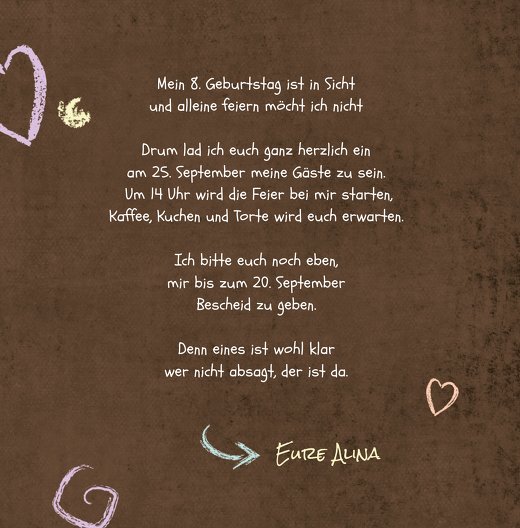 Mein 8. Geburtstag ist in Sicht
und alleine feiern möcht ich nicht
Drum lad ich euch ganz herzlich ein
am 25. September meine Gäste zu sein.
Um 14 Uhr wird die Feier bei mir starten,
Kaffee, Kuchen und Torte wird euch erwarten.
Ich bitte euch noch eben,
mir bis zum 20. September
Bescheid zu geben.
Denn eines ist wohl klar
wer nicht absagt, der ist da.
Eure Alina